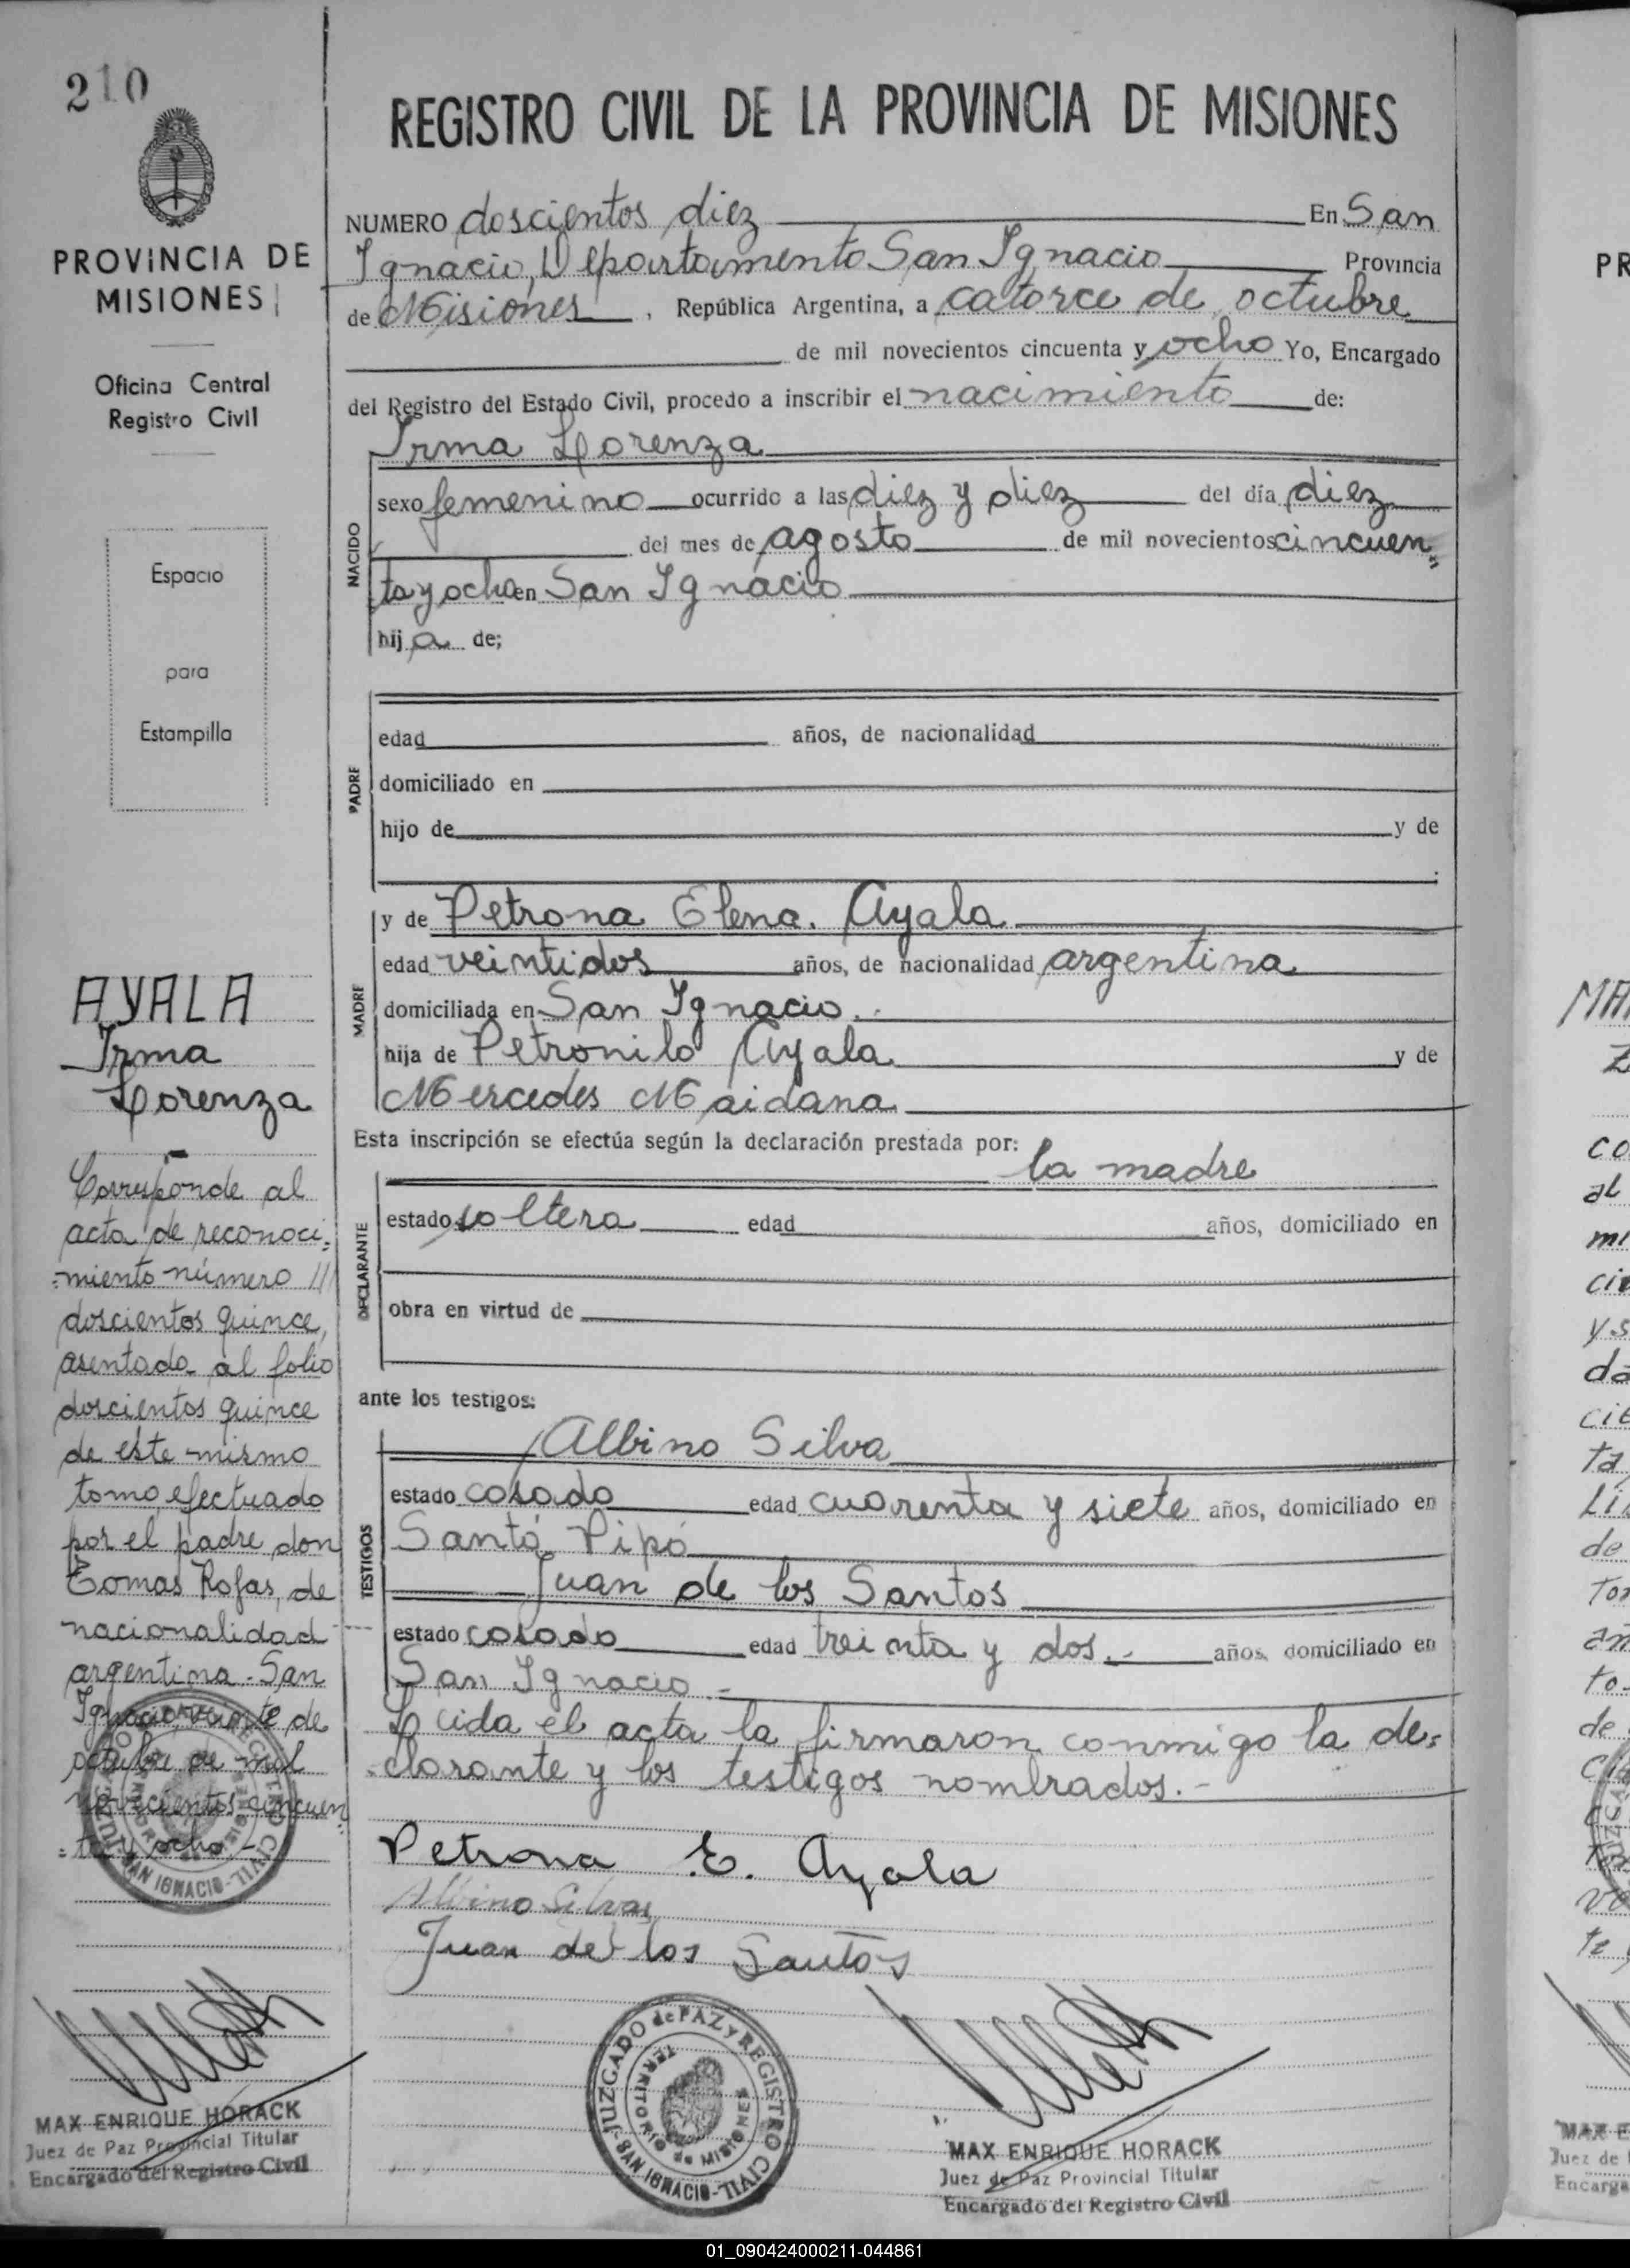 210
PROVINCIA DE
MISIONES
Oficina Central
Registro Civil
Espacio
para
Estampilla
AYALA
Irma
Lorenza
Corresponde al
acta de reconoci=
=miento número ///
doscientos quince,
asentada al folio
doscientos quince
de este mismo
tomo, efectuado
por el padre don
Tomas Rojas, de
nacionalidad
argentina.- San
Ignacio, veinte de
octubre de mil
novecientos cincuen
=ta y ocho.-
MAX ENRIQUE HORACK
Juez de Paz Provincial Titular
Encargado del Registro Civil
REGISTRO CIVIL DE LA PROVINCIA DE MISIONES
NUMERO doscientos diez En San
Ignacio, Departamento San Ignacio Provincia
de Misiones, República Argentina, a catorce de octubre
de mil novecientos cincuenta y ocho Yo, Encargado
del Registro del Estado Civil, procedo a inscribir el nacimiento de:
Irma Lorenza
NACIDO
sexo femenino ocurrido a las diez y diez del día diez
del mes de agosto de mil novecientos cincuen=
ta y ocho en San Ignacio
hija de;
PADRE
edad años, de nacionalidad
domiciliado en
hijo de y de
MADRE
y de Petrona Elena. Ayala
edad veintidos años, de nacionalidad argentina
domiciliada en San Ignacio.-
hija de Petronilo Ayala y de
Mercedes Maidana
Esta inscripción se efectúa según la declaración prestada por:
la madre
DECLARANTE
estado soltera edad años, domiciliado en
obra en virtud de
ante los testigos:
TESTIGOS
Albino Silva
estado casado edad cuarenta y siete años, domiciliado en
Santo Pipó
Juan de los Santos
estado casado edad treinta y dos.- años, domiciliado en
San Ignacio.-
Leida el acta la firmaron conmigo la de=
=clarante y los testigos nombrados.-
Petrona E. Ayala
Albino Silva
Juan de los Santos
JUZGADO de PAZ y REGISTRO CIVIL - SAN IGNACIO -
TERRITORIO de MISIONES
MAX ENRIQUE HORACK
Juez de Paz Provincial Titular
Encargado del Registro Civil
01_090424000211-044861